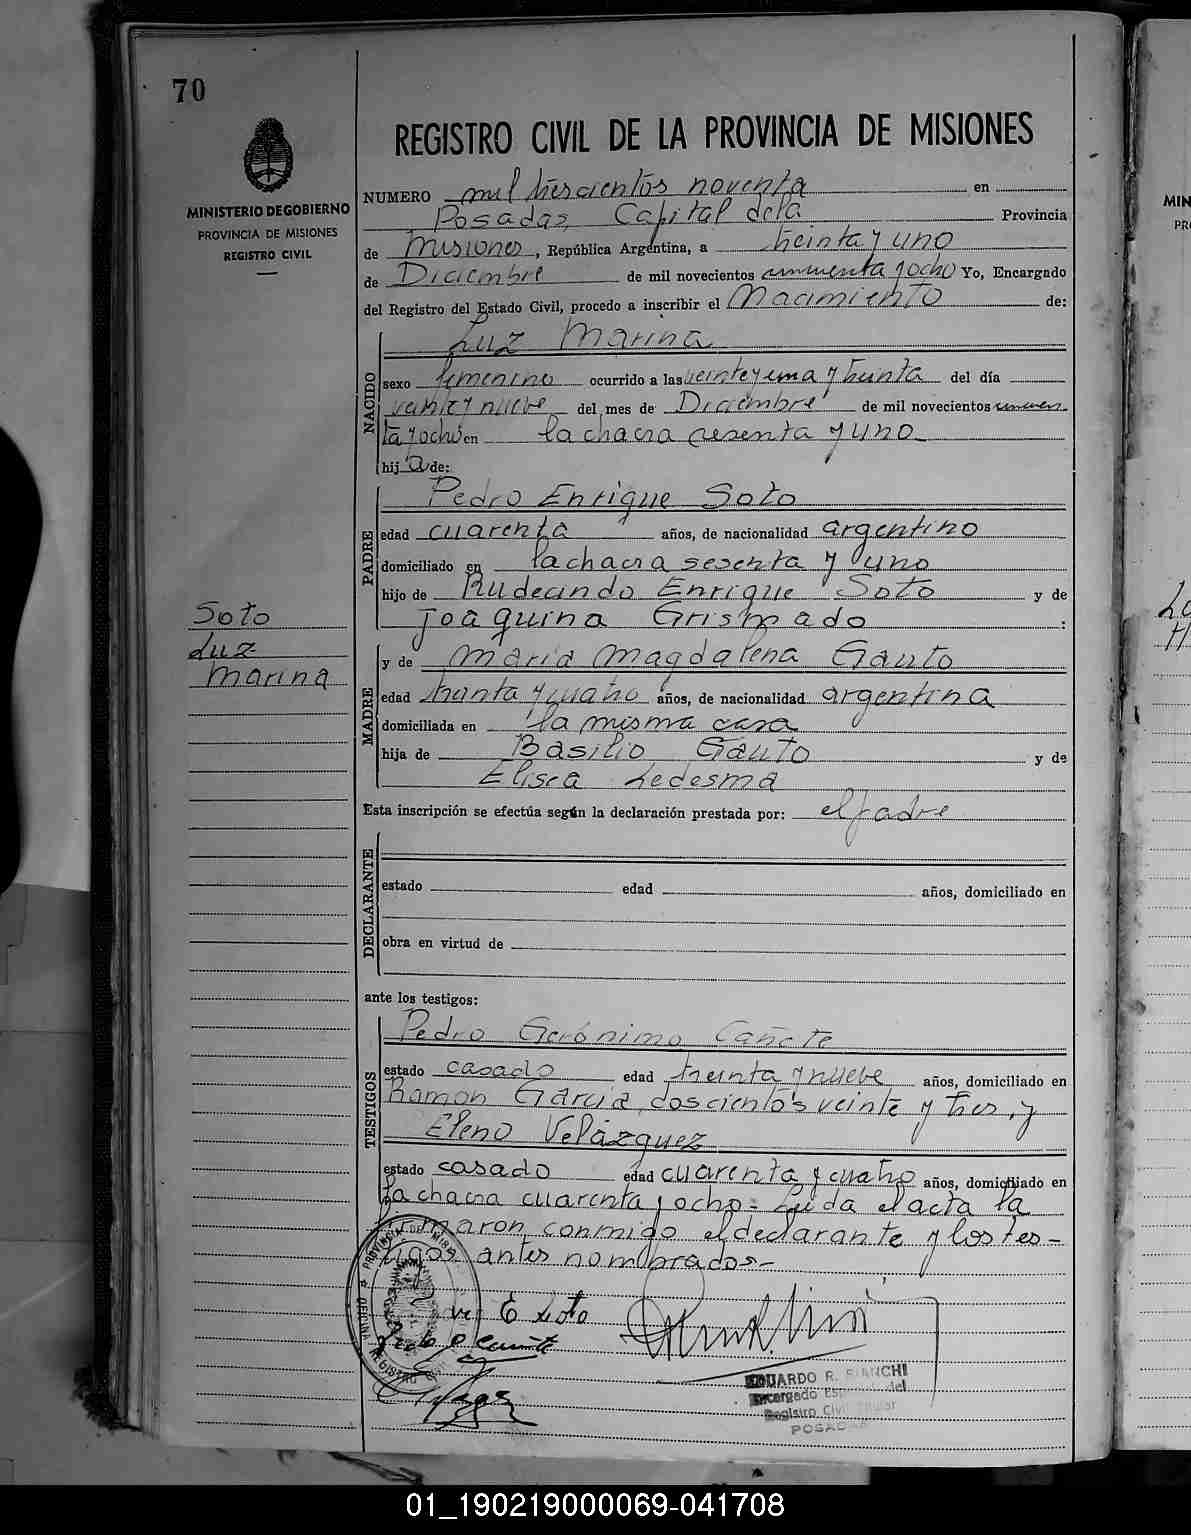 70
REGISTRO CIVIL DE LA PROVINCIA DE MISIONES
MINISTERIO DE GOBIERNO
PROVINCIA DE MISIONES
REGISTRO CIVIL
Soto
Luz
Marina
NUMERO mil trescientos noventa en
Posadas, Capital de la Provincia
de Misiones, República Argentina, a treinta y uno
de Diciembre de mil novecientos cincuenta y ocho Yo, Encargado
del Registro del Estado Civil, procedo a inscribir el Nacimiento de:
NACIDO
Luz Marina
sexo femenino ocurrido a las veinte y una y treinta del día
veinte y nueve del mes de Diciembre de mil novecientos cincuen
ta y ocho en la chacra sesenta y uno
hij a de:
PADRE
Pedro Enrique Soto
edad cuarenta años, de nacionalidad argentino
domiciliado en la chacra sesenta y uno
hijo de Rudecindo Enrique Soto y de
Joaquina Grismado :
MADRE
y de Maria Magdalena Gauto
edad treinta y cuatro años, de nacionalidad argentina
domiciliada en la misma casa
hija de Basilio Gauto y de
Elisea Ledesma
Esta inscripción se efectúa según la declaración prestada por: el padre
DECLARANTE
estado edad años, domiciliado en
obra en virtud de
ante los testigos:
TESTIGOS
Pedro Gerónimo Cañete
estado casado edad treinta y nueve años, domiciliado en
Ramon Garcia, doscientos veinte y tres, y
Eleno Velázquez
estado casado edad cuarenta y cuatro años, domiciliado en
la chacra cuarenta y ocho= Leida el acta la
firmaron conmigo el declarante y los tes-
tigos antes nombrados-
E Soto
EDUARDO R. BIANCHI
Encargado del
Registro Civil Titular
POSADAS
MIN
PR
01_190219000069-041708